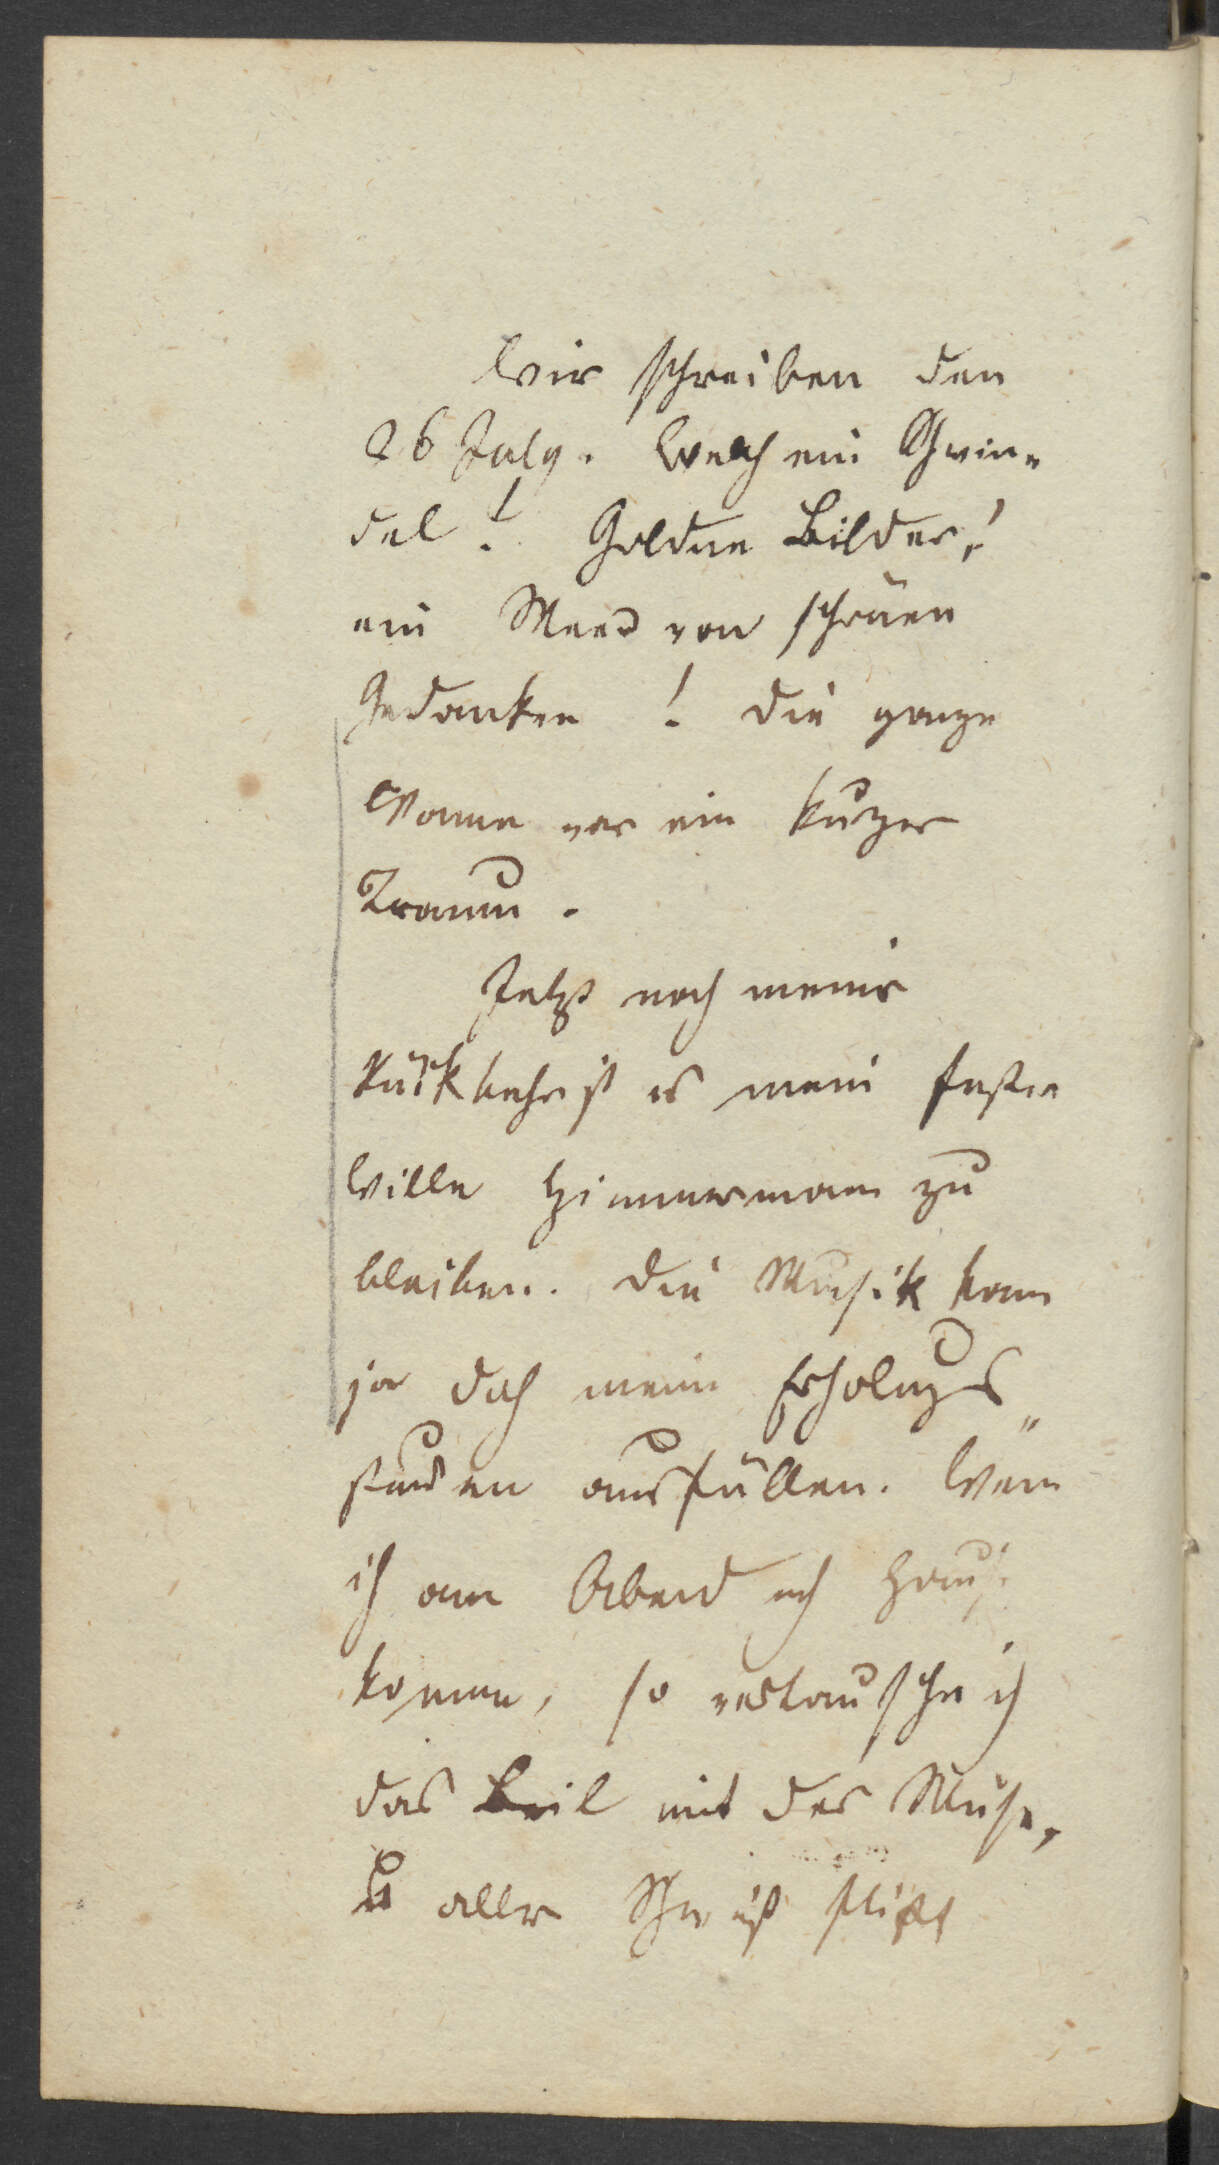 Wir schreiben den
26 July. Welch ein Schwin-
del! Goldne Bilder!
ein Meer von schönen
Gedanken! die ganze
Wonne war ein kurzer
Traum.
Jetzt nach meiner
Rückkehr ist es mein fester
Wille Zimmermann zu
bleiben. die Musik kann
ja doch meine Erholungs„
stunden ausfüllen. Wenn
ich am Abend nach Hause
komme, so vertausche ich
das Beil mit der Muse,
u aller Schweiß fließt